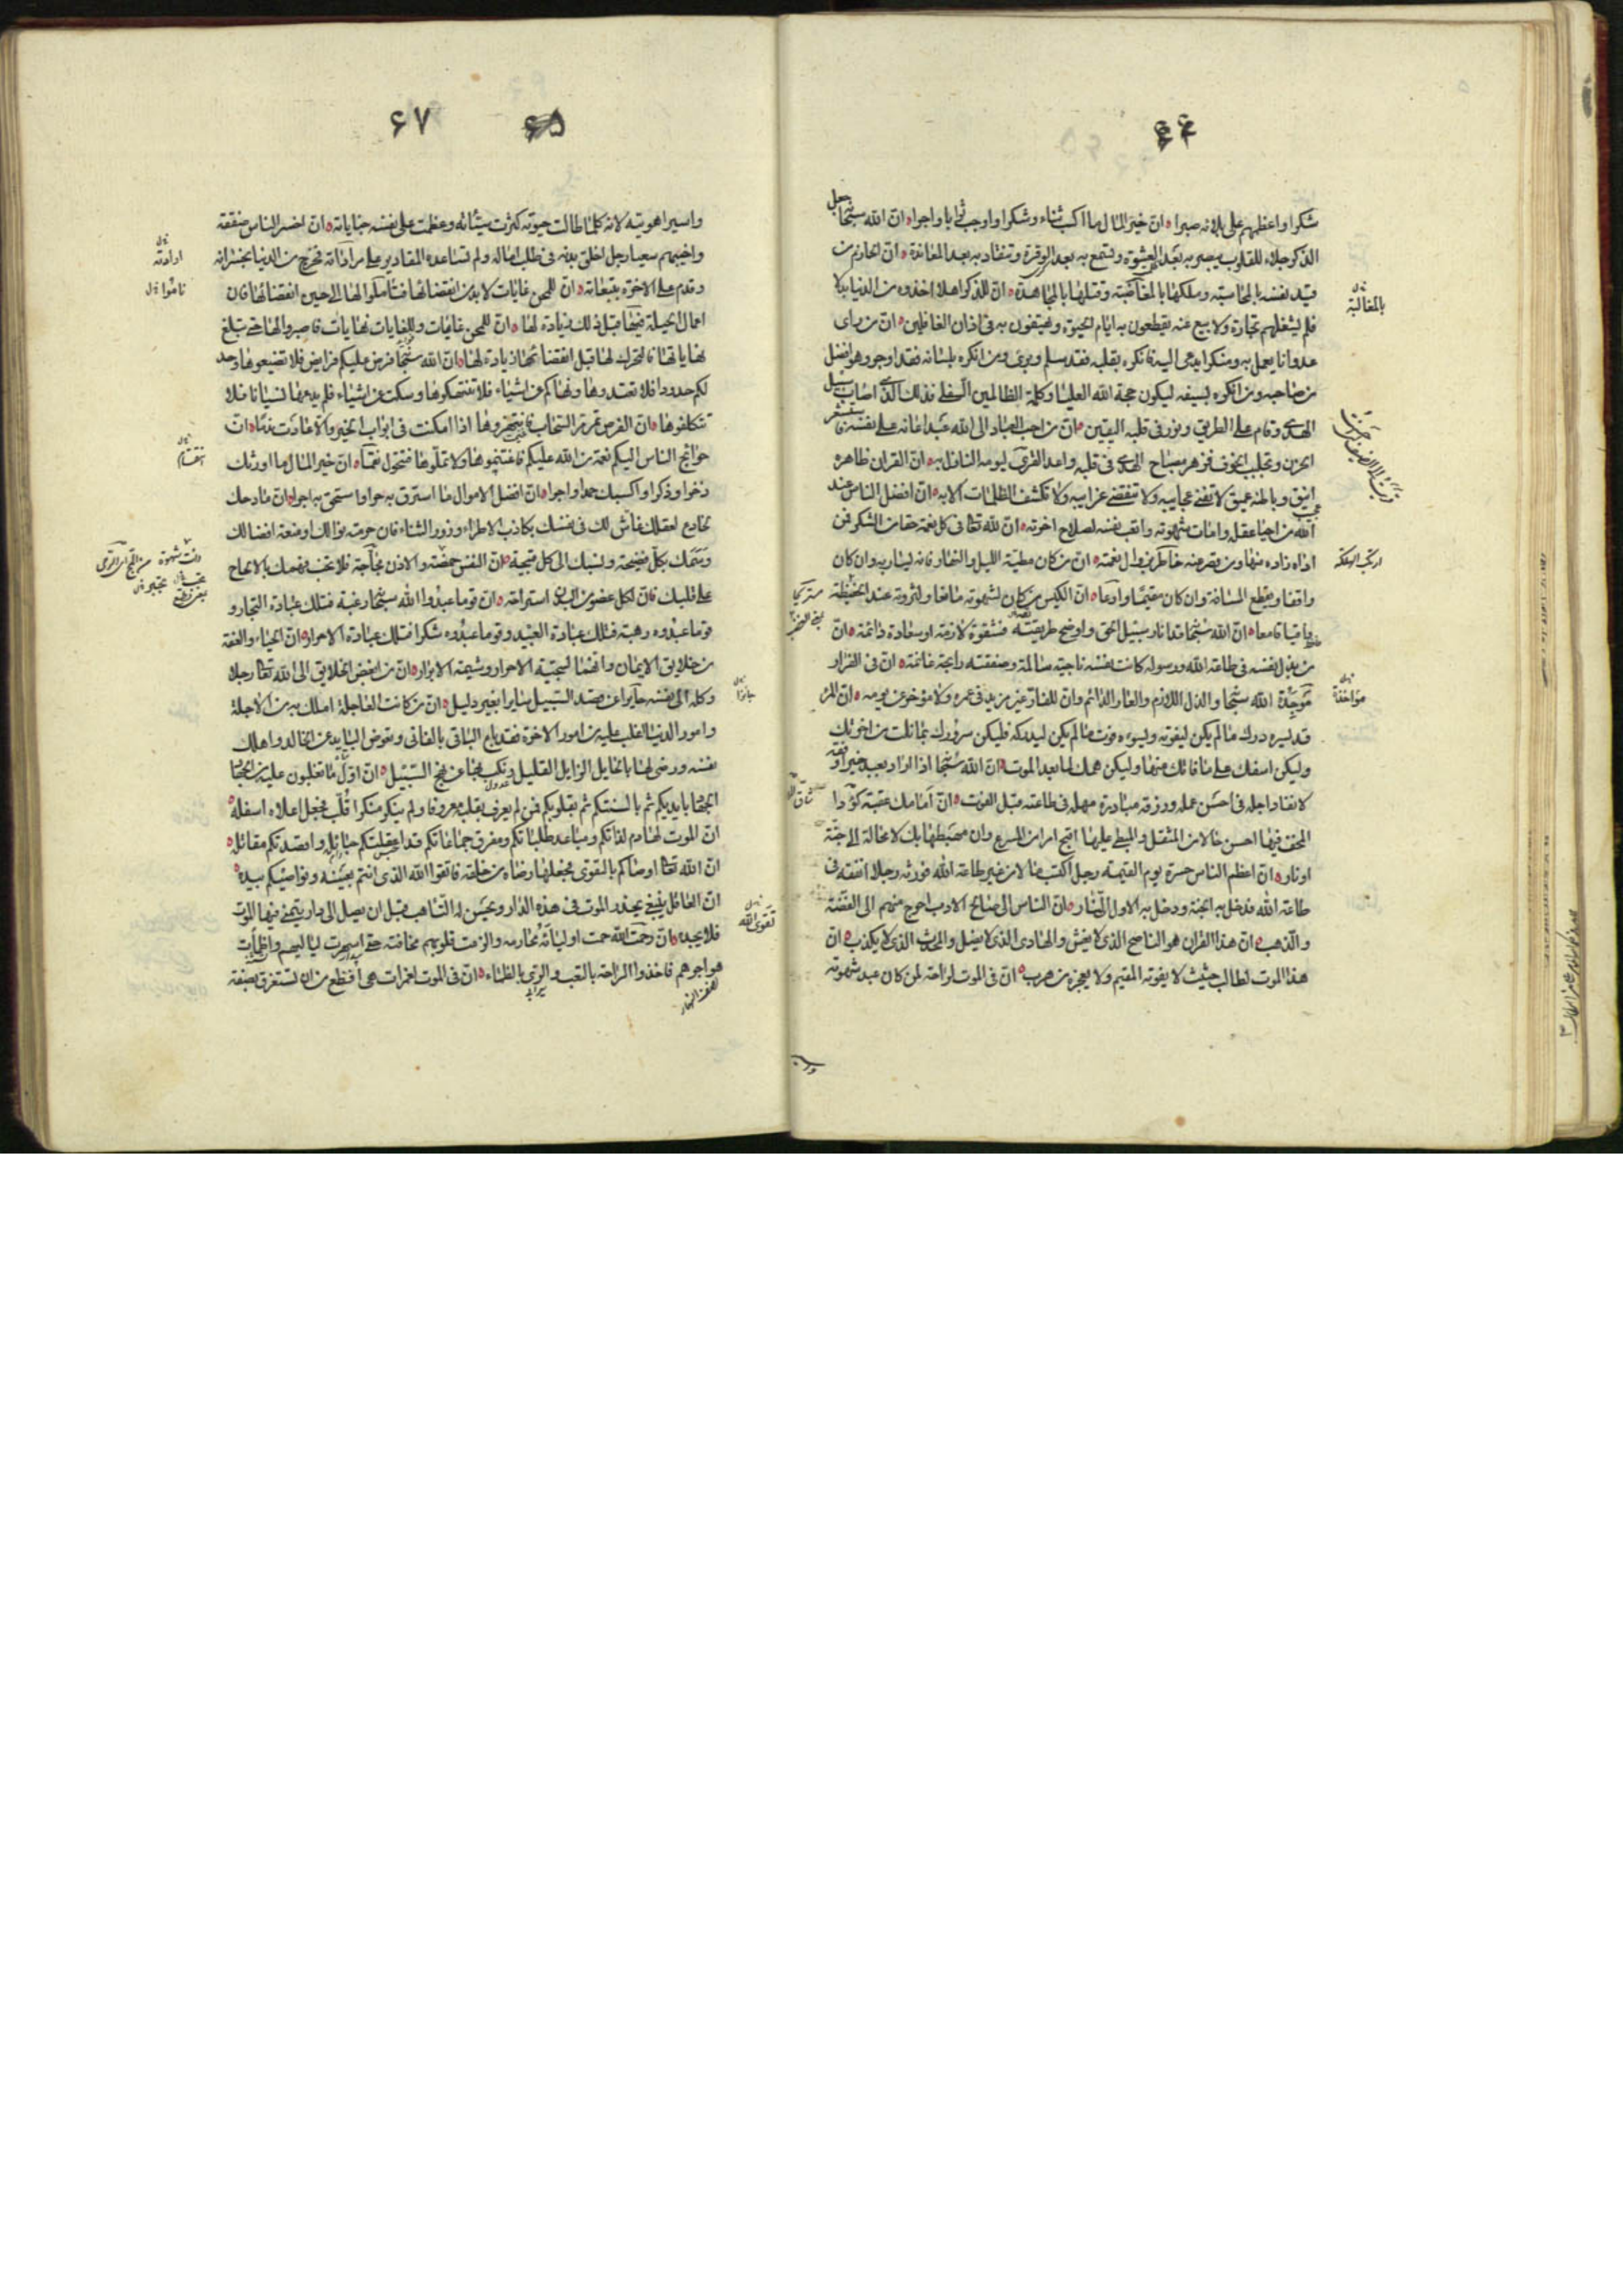 ۶۶
شكرا واعظمهم على بلائه صبرا ان خير المال ما اكسب ثناء وشكرا واوجب ثوابا واجرا ان الله سبحانه جعل
الذكر جلاء للقلوب يبصر به بعد العشوة ويسمع به بعد الوقرة وتنقاد به بعد المعاندة ان الحازم من
قيد نفسه بالمحاسبة وملكها بالمغاضبة وقتلها بالمجاهدة ان للذكر اهلا اخذوه من الدنيا بدلا
فلم يشغلهم تجارة ولا بيع عنه يقطعون به ايام الحيوة ويهتفون به فى اذان الغافلين ان من راى
عدوانا يعمل به ومنكرا يدعى اليه فانكره بقلبه فقد سلم وبرئ ومن انكره بلسانه فقد اوجر وهو افضل
من صاحبه ومن انكره بسيفه ليكون حجة الله العليا وكلمة الظالمين السفلى فذلك الذى اصاب سبيل
الهدى وقام على الطريق ونور فى قلبه اليقين ان من احب العباد الى الله عبدا اعانه على نفسه فاستشعر
الحزن وتجلبب الخوف فزهر مصباح الهدى فى قلبه واعد القرى ليومه النازل به ان القران ظاهره
انيق وباطنه عميق لا تفنى عجايبه ولا تنقضى غرايبه ولا تكشف الظلمات الا به ان افضل الناس عند
الله من احيا عقله وامات شهوته واتعب نفسه لصلاح اخرته ان لله تعالى فى كل نعمة حقا من الشكر فمن
اداه زاده منها ومن قصر عنه خاطر بزوال نعمته ان من كان مطيته الليل والنهار فانه يسار به وان كان
واقفا ويقطع المسافة وان كان مقيما وادعا ان الكيس من كان لشهوته مانعا ولنزوته عند الحفيظة
واقما قامعا ان الله سبحانه قد انار سبيل الحق واوضح طريقته فشقوة لازمة او سعادة دائمة ان
من بذل نفسه فى طاعة الله ورسوله كانت نفسه ناجية سالمة وصفقته رابحة غانمة ان فى الفرار
موجدة الله سبحانه والذل اللازم والعار الدائم وان للفار غير مزيد فى عمره ولا مؤخر عن يومه ان المرء
قد يسره درك ما لم يكن ليفوته ويسوءه فوت ما لم يكن ليدركه فليكن سرورك بما نلت من اخرتك
وليكن اسفك على ما فاتك منها وليكن همك لما بعد الموت ان الله سبحانه اذا اراد بعبد خيرا وفقه
لانفاد اجله فى احسن عمله ورزقه مبادرة مهله فى طاعته قبل الفوت ان امامك عقبة كؤدا
المخف فيها احسن حالا من المثقل والمبطى عليها اقبح امرا من المسرع وان مهبطها بك لا محالة الى جنة
او نار ان اعظم الناس حسرة يوم القيمة رجل اكتسب مالا من غير طاعة الله فورثه رجلا انفقه فى
طاعة الله فدخل به الجنة ودخل به الاول النار ان الناس الى صالح الادب احوج منهم الى الفضة
والذهب ان هذا القران هو الناصح الذى لا يغش والهادى الذى لا يضل والمحدث الذى لا يكذب ان
هذا الموت لطالب حثيث لا يفوته المقيم ولا يعجزه من هرب ان فى الموت لراحة لمن كان عبد شهوته
بالمغالبة
ارتكب الهلكة
مؤاخذة
۶۷
واسير اهويته لانه كلما طالت حيوته كثرت سيئاته وعظمت على نفسه جناياته ان اخسر الناس صفقة
واخيبهم سعيا رجل اخلق بدنه فى طلب اماله ولم تساعده المقادير على مراداته فخرج من الدنيا بحسراته
وقدم على الاخرة بتبعاته ان للمحن غايات لا بد من انقضائها فناموا لها الى حين انقضائها فان
اعمال الحيلة فيها قبل ذلك زيادة لها ان للمحن غايات وللغايات نهايات فاصبروا لها حتى تبلغ
نهاياتها فالتحرك لها قبل انقضائها زيادة لها ان الله سبحانه فرض عليكم فرايض فلا تضيعوها وحد
لكم حدودا فلا تعتدوها ونهاكم عن اشياء فلا تنتهكوها وسكت عن اشياء فلم يدعها نسيانا فلا
تتكلفوها ان الفرص تمر مر السحاب فانتهزوها اذا امكنت فى ابواب الخير والا عادت ندما ان
حوائج الناس اليكم نعمة من الله عليكم فاغتنموها ولا تملوها فتتحول نقما ان خير المال ما اورثك
ذخرا وذكرا واكسبك حمدا واجرا ان افضل الاموال ما استرق به حر او استحق به اجر ان مادحك
لخادع لعقلك غاش لك فى نفسك بكاذب الاطراء وزور الثناء فان حرمته نوالك او منعته افضالك
وسمك بكل فضيحة ونسبك الى كل قبيحة ان النفس حمضة والاذن مجاجة فلا تجب فهمك بالالحاح
على قلبك فان لكل عضو من البدن استراحة ان قوما عبدوا الله سبحانه رغبة فتلك عبادة التجار و
قوما عبدوه رهبة فتلك عبادة العبيد وقوما عبدوه شكرا فتلك عبادة الاحرار ان الحياء والعفة
من خلايق الايمان وانهما لسجية الاحرار وشيمة الابرار ان من ابغض الخلايق الى الله تعالى رجلا
وكله الى نفسه جايرا عن قصد السبيل سايرا بغير دليل ان من كانت العاجلة املك به من الاجلة
وامور الدنيا اغلب عليه من امور الاخرة فقد باع الباقى بالفانى وتعوض البايد عن الخالد واهلك
نفسه ورضى لها بالحايل الزايل القليل ونكب بها عن نهج السبيل ان اول ما تغلبون عليه من الجهاد
الجهاد بايديكم ثم بالسنتكم ثم بقلوبكم فمن لم يعرف بقلبه معروفا ولم ينكر منكرا قلب فجعل اعلاه اسفله
ان الموت لهادم لذاتكم ومباعد طلباتكم ومفرق جماعاتكم قد اعلقتكم حبائله واقصدتكم مقاتله
ان الله تعالى اوصاكم بالتقوى فجعلها رضاه من خلقه فاتقوا الله الذى انتم بعينه ونواصيكم بيده
ان العاقل ينبغى يحذر الموت فى هذه الدار ويحسن له التاهب قبل ان يصل الى دار يتمنى فيها الموت
فلا يجده ان رحمة الله حمت اولياءه محارمه والزمت قلوبهم مخافته حتى اسهرت لياليهم واظمأت
هواجرهم فاخذوا الراحة بالتعب والرى بالظماء ان فى الموت لغمرات هى افظع من ان تستغرق بصفة
اراداته
تقوى الله
جائرا